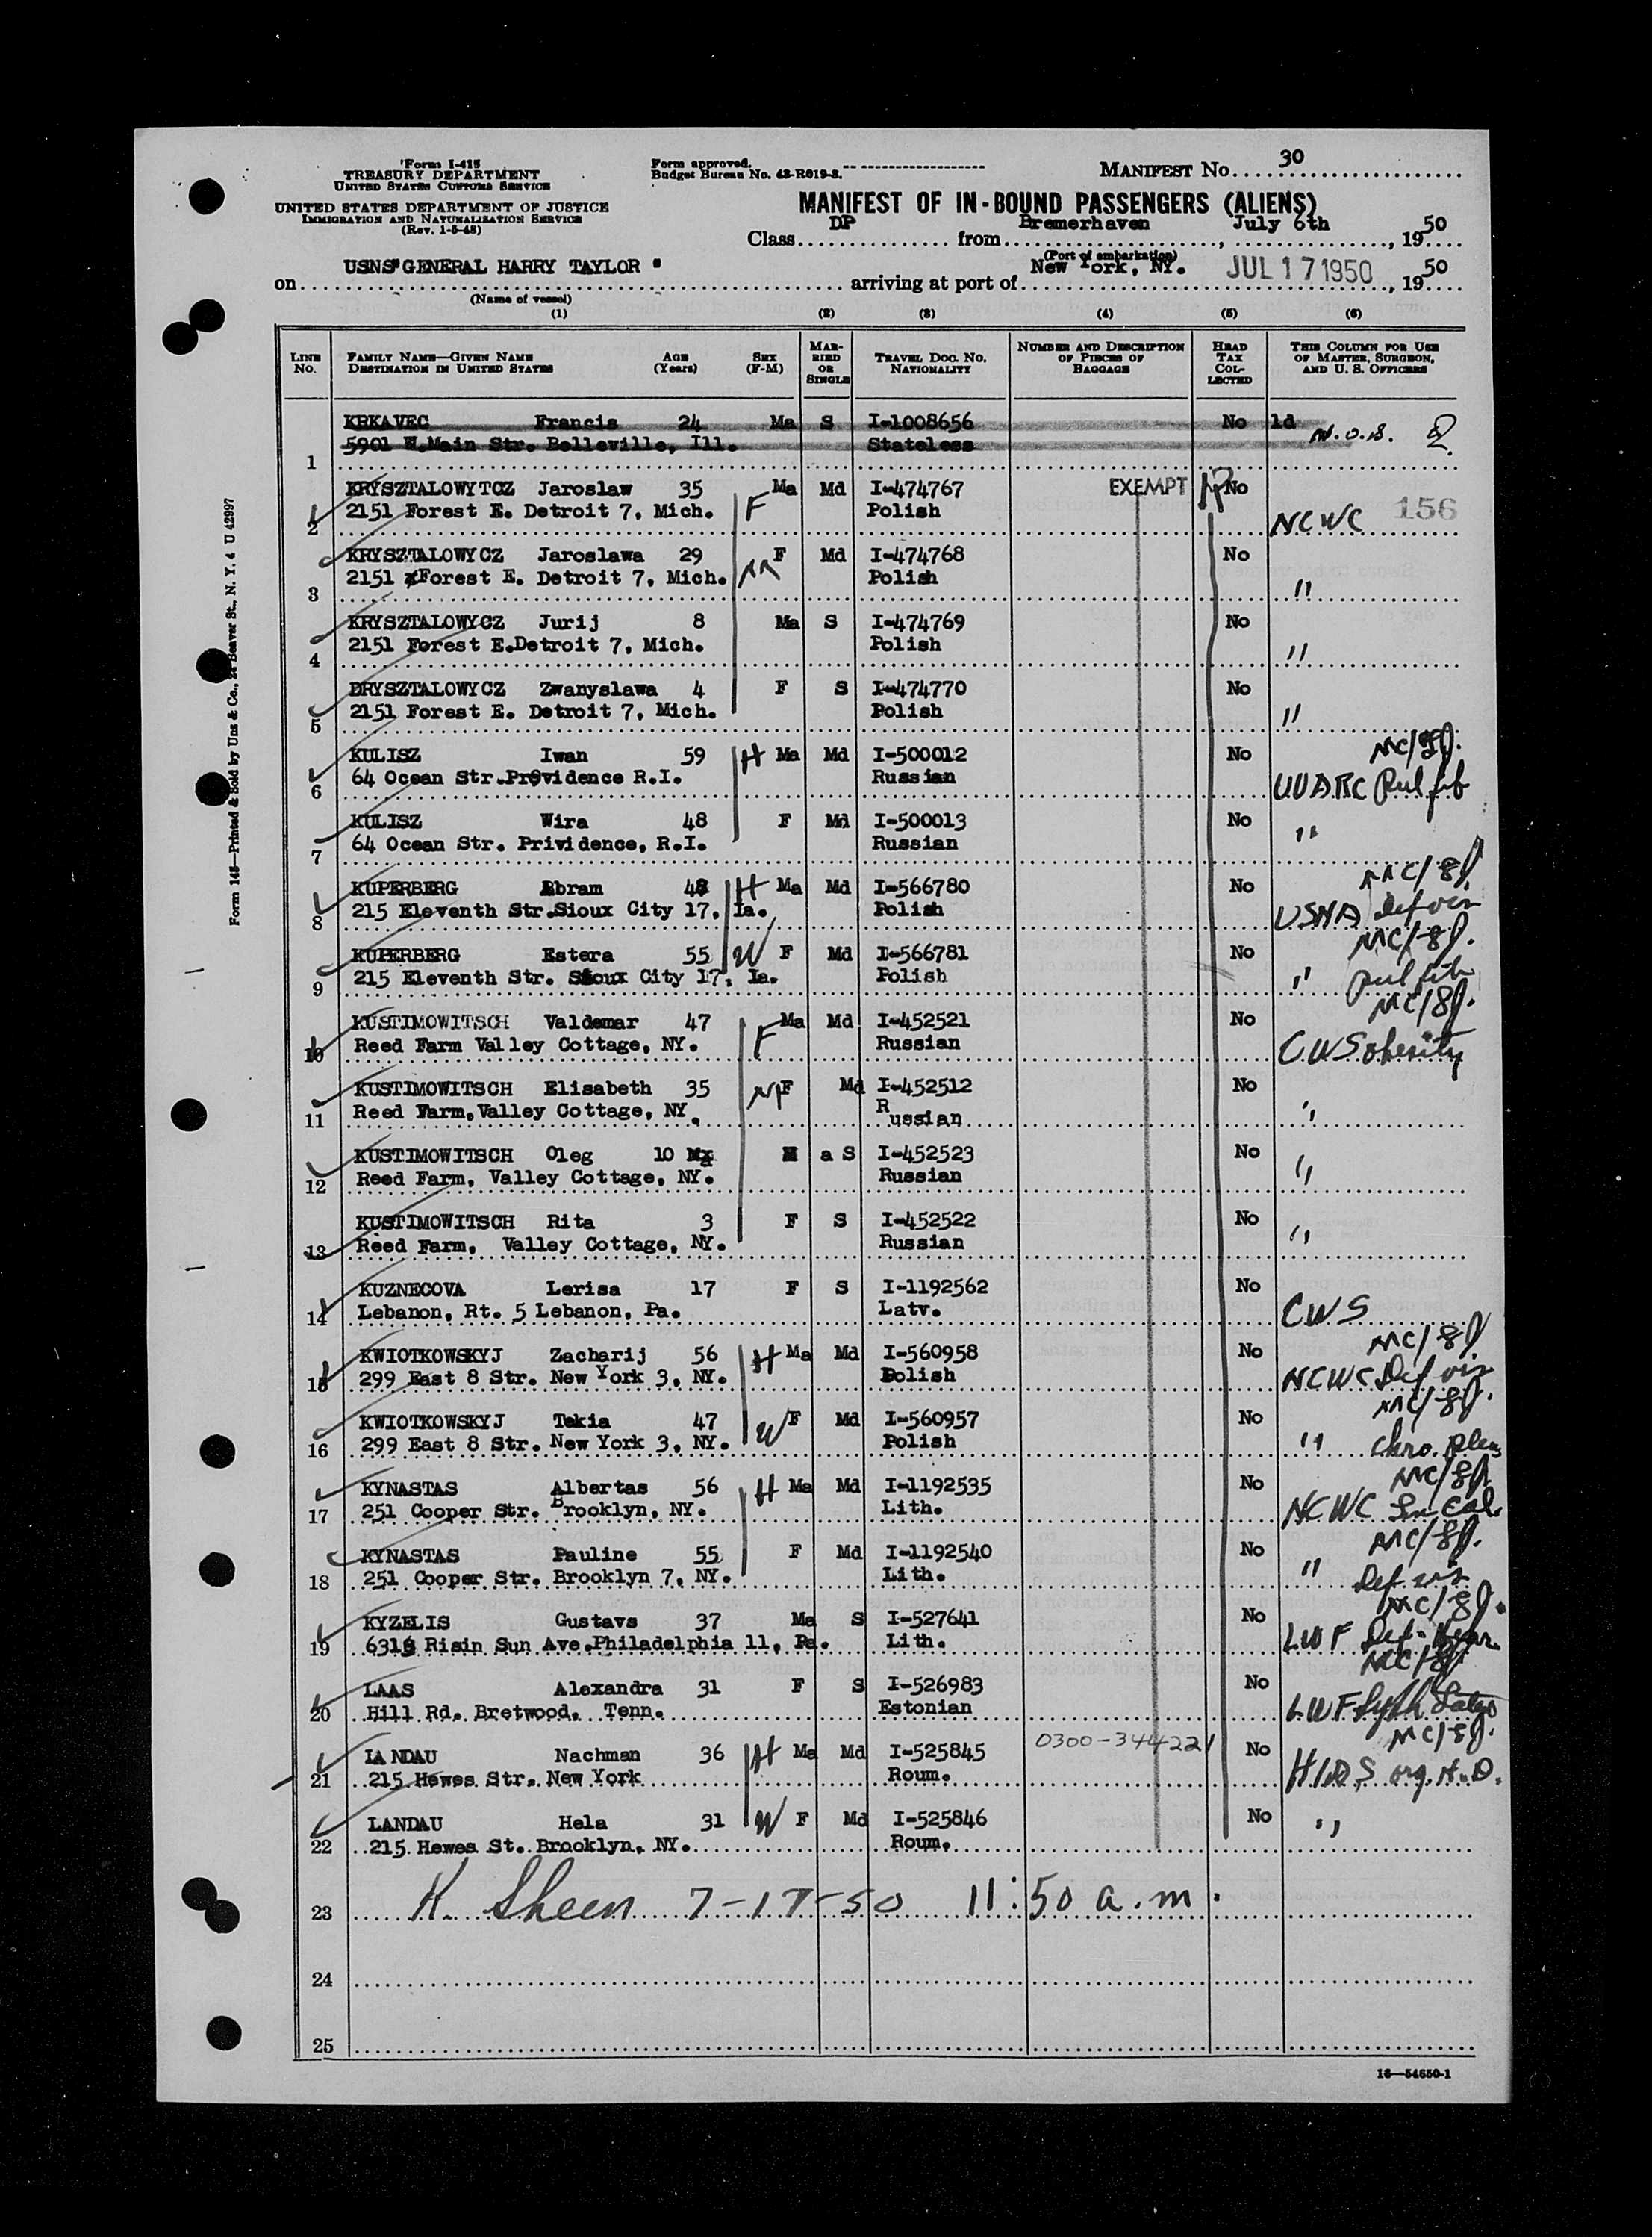 Form I-415
TREASURY DEPARTMENT
UNITED STATES CUSTOMS SERVICE
UNITED STATES DEPARTMENT OF JUSTICE
IMMIGRATION AND NATURALIZATION SERVICE
(Rev. 1-5-48)
Form approved.
Budget Bureau No. 43-R019-3.
MANIFEST No. 30
MANIFEST OF IN-BOUND PASSENGERS (ALIENS)
Class DP from Bremerhaven, July 6th, 1950
(Port of embarkation)
on USNS "GENERAL HARRY TAYLOR" arriving at port of New York, NY. JUL 17 1950, 1950
(Name of vessel)
(1) (2) (3) (4) (5) (6)
LINE No. FAMILY NAME—GIVEN NAME DESTINATION IN UNITED STATES AGE (Years) SEX (F-M) MARRIED OR SINGLE TRAVEL DOC. NO. NATIONALITY NUMBER AND DESCRIPTION OF PIECES OF BAGGAGE HEAD TAX COLLECTED THIS COLUMN FOR USE OF MASTER, SURGEON, AND U. S. OFFICERS
KRKAVEC Francis 24 Ma S I-1008656 No ld N.O.B.
1 5901 W.Main Str. Belleville, Ill. Stateless
KRYSZTALOWYTCZ Jaroslaw 35 Ma Md I-474767 EXEMPT No
2 2151 Forest E. Detroit 7, Mich. F Polish NCWC 156
KRYSZTALOWYCZ Jaroslawa 29 F Md I-474768 No
3 2151 Forest E. Detroit 7, Mich. Polish "
KRYSZTALOWYCZ Jurij 8 Ma S I-474769 No
4 2151 Forest E.Detroit 7, Mich. Polish "
DRYSZTALOWYCZ Zwanyslawa 4 F S I-474770 No
5 2151 Forest E. Detroit 7, Mich. Polish "
KULISZ Iwan 59 H Ma Md I-500012 No
6 64 Ocean Str.Providence R.I. Russian UUARC
KULISZ Wira 48 F Md I-500013 No
7 64 Ocean Str. Prividence, R.I. Russian "
KUPERBERG Abram 48 H Ma Md I-566780 No
8 215 Eleventh Str.Sioux City 17, Ia. Polish USNA Def vis
KUPERBERG Estera 55 W F Md I-566781 No
9 215 Eleventh Str. Sioux City 17, Ia. Polish "
KUSTIMOWITSCH Valdemar 47 Ma Md I-452521 No
10 Reed Farm Valley Cottage, NY. F Russian CWS obesity
KUSTIMOWITSCH Elisabeth 35 F Md I-452512 No
11 Reed Farm,Valley Cottage, NY. Russian "
KUSTIMOWITSCH Oleg 10 Ma M a S I-452523 No
12 Reed Farm, Valley Cottage, NY. Russian "
KUSTIMOWITSCH Rita 3 F S I-452522 No
13 Reed Farm, Valley Cottage, NY. Russian "
KUZNECOVA Lerisa 17 F S I-1192562 No
14 Lebanon, Rt. 5 Lebanon, Pa. Latv. CWS
KWIOTKOWSKYJ Zacharij 56 H Ma Md I-560958 No
15 299 East 8 Str. New York 3, NY. Polish NCWC Def vis
KWIOTKOWSKYJ Tekia 47 W F Md I-560957 No
16 299 East 8 Str. New York 3, NY. Polish " chro.
KYNASTAS Albertas 56 H Ma Md I-1192535 No
17 251 Cooper Str. Brooklyn, NY. Lith. NCWC
KYNASTAS Pauline 55 F Md I-1192540 No
18 251 Cooper Str. Brooklyn 7, NY. Lith. " Def vis
KYZELIS Gustavs 37 Ma S I-527641 No
19 6318 Risin Sun Ave.Philadelphia 11, Pa. Lith. LWF Def.
LAAS Alexandra 31 F S I-526983 No
20 Hill Rd. Bretwood, Tenn. Estonian LWF
LANDAU Nachman 36 H Ma Md I-525845 0300-344221 No
21 215 Hewes Str. New York Roum. HIAS org. H.D.
LANDAU Hela 31 W F Md I-525846 No
22 215 Hewes St. Brooklyn, NY. Roum. "
23 K. Sheen 7-17-50 11:50 a.m.
24
25
16—54650-1
Form 145—Printed & Sold by Unz & Co., 24 Beaver St., N. Y. 4 U 42997